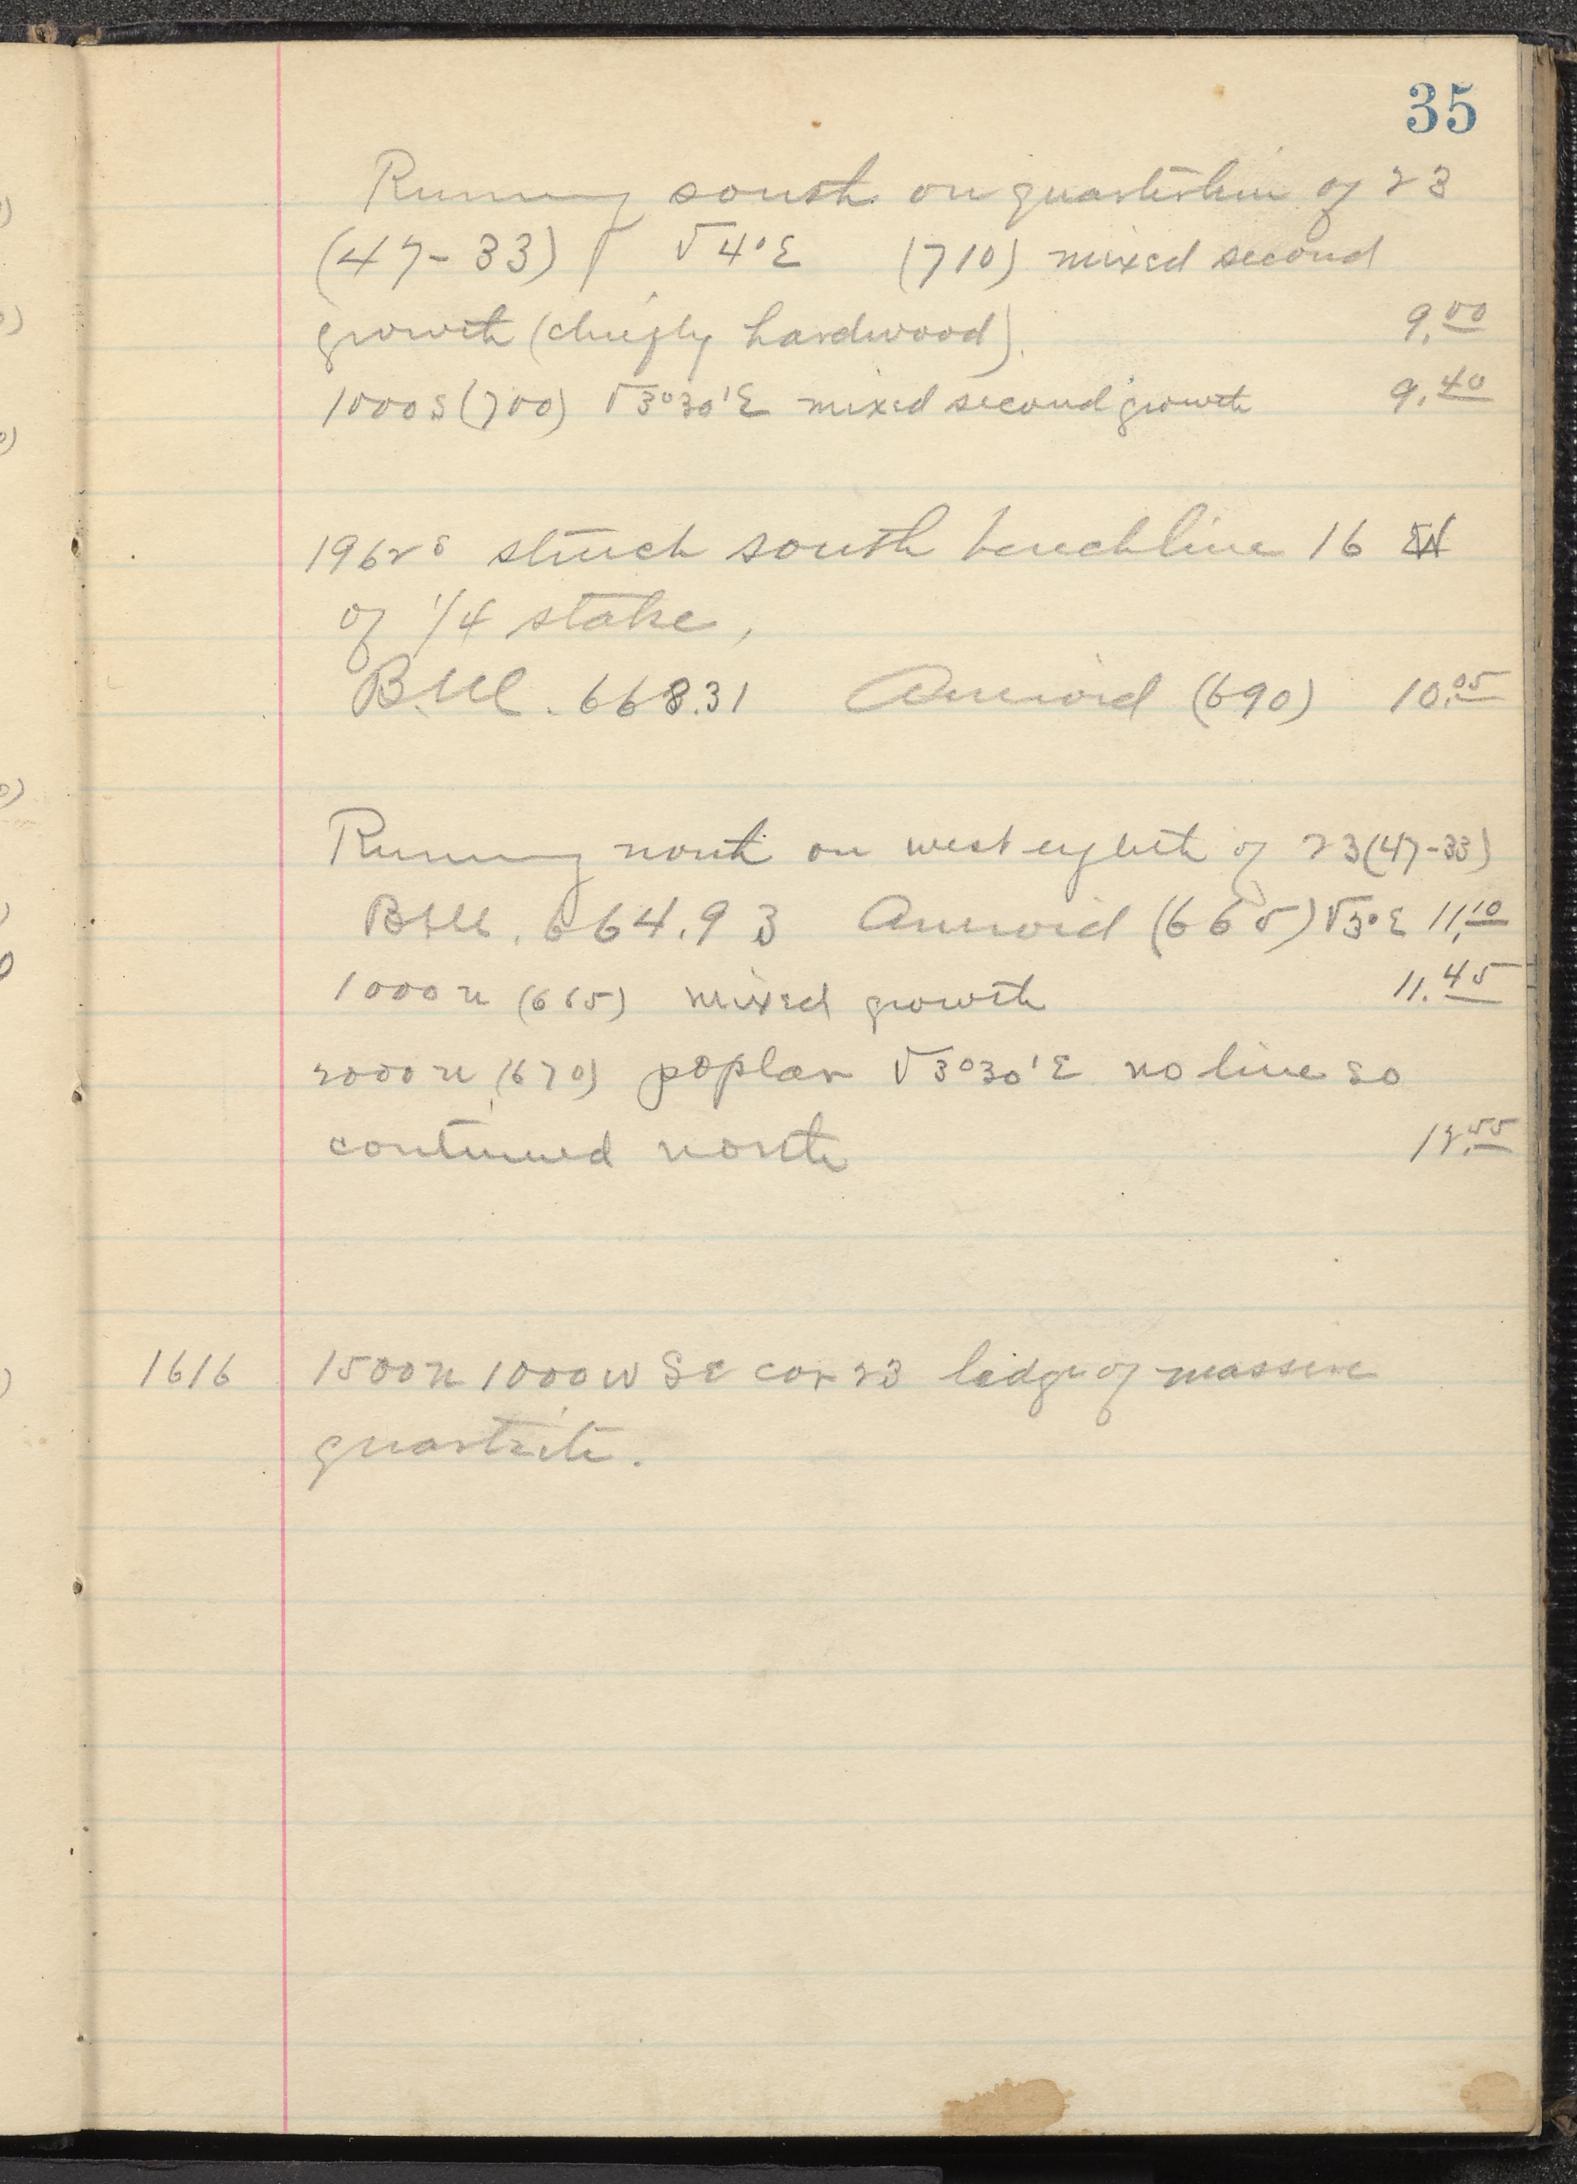 35
Running south on quarterline of 23
(47-33) √4°E (710) mixed second
growth (chiefly hardwood). 9.00
1000 S (700) √3°30'E mixed second growth 9.40
1962 S struck south benchline 16 W
of 1/4 stake,
B.M. 668.31 Aneroid (690) 10.05
Running north on west eighth of 23 (47-33)
B.M. 664.93 Aneroid (665) √3°E 11.10
1000 n (665) mixed growth 11.45
2000 n (670) poplar √3°30'E no line so
continued north 55
1616 1500 n 1000 W SE cor 23 ledge of massive
quartzite.